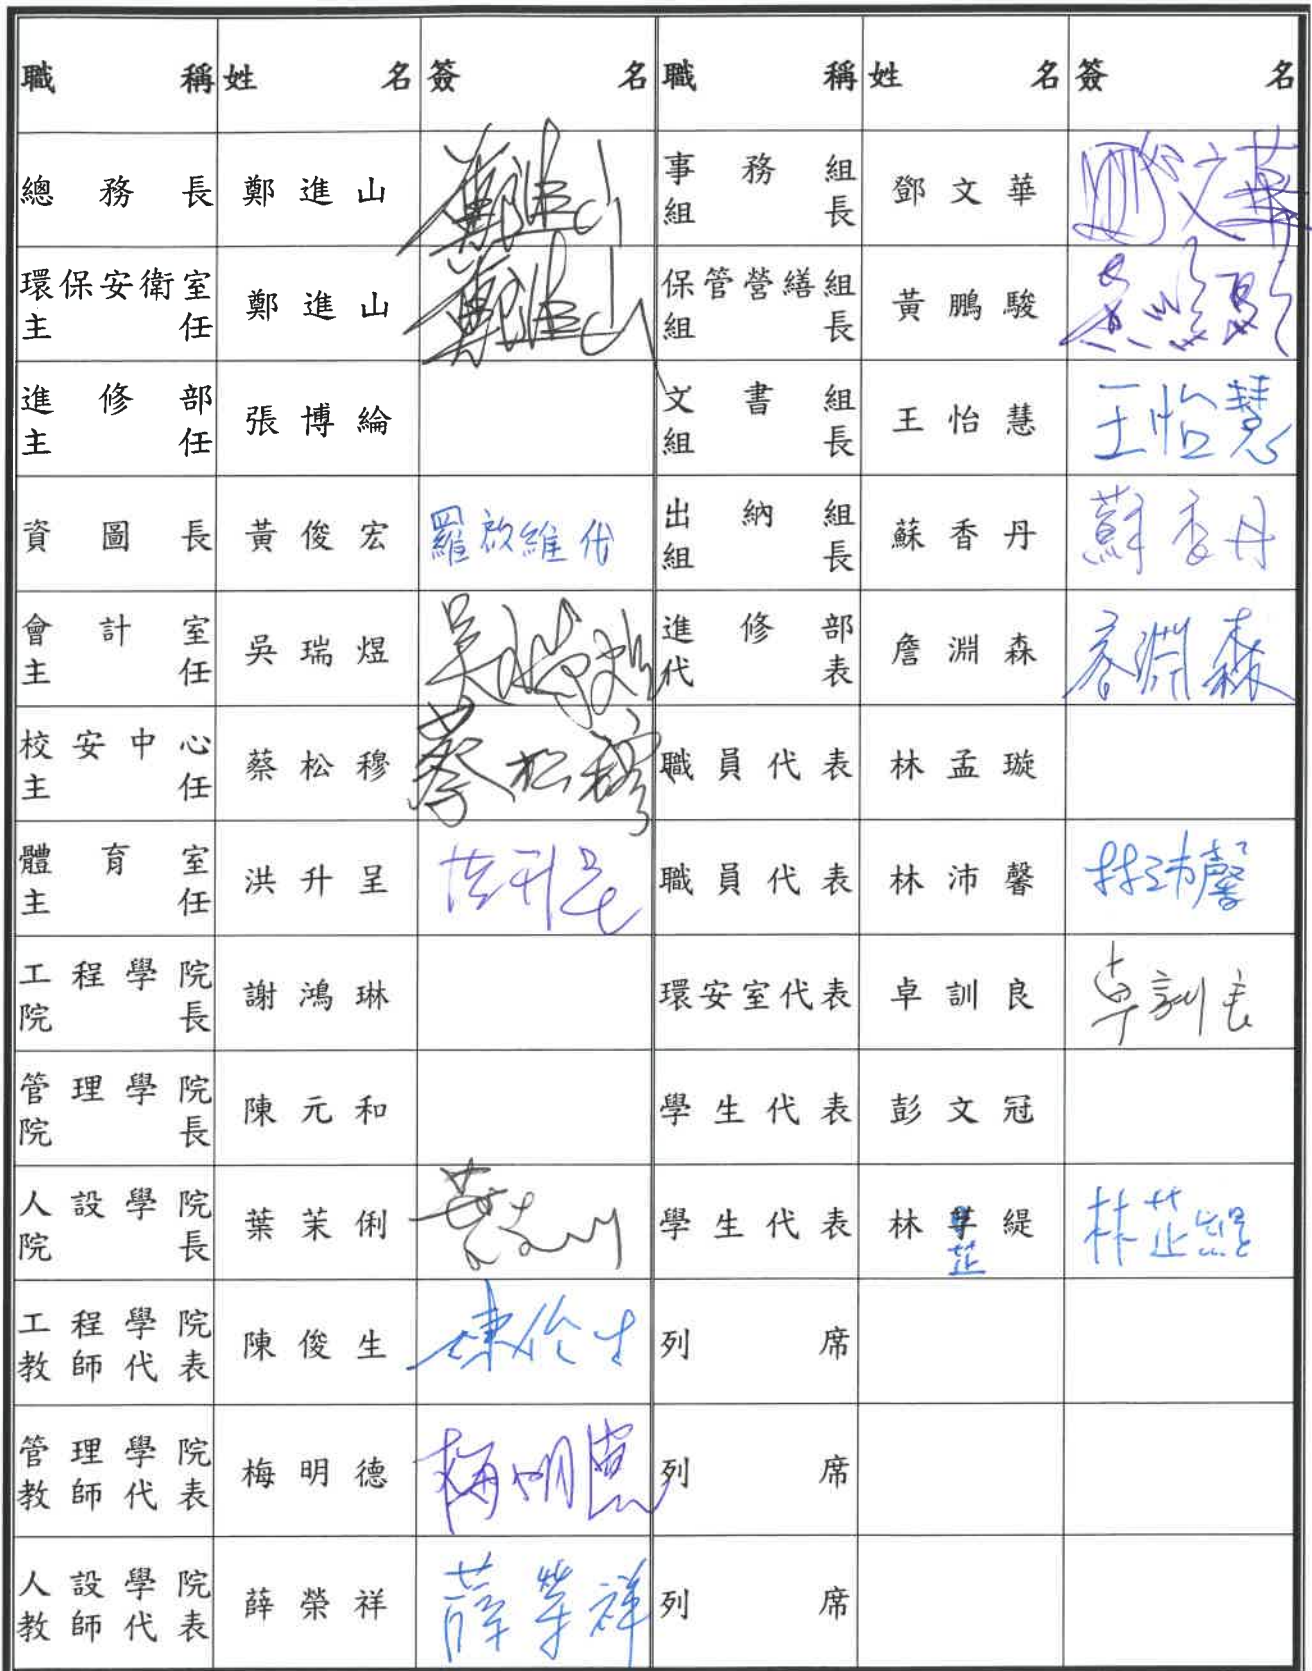 職稱 姓名 簽名 職稱 姓名 簽名
總務長 鄭進山 鄭進山 事務組組長 鄧文華 鄧文華
環保安衛室主任 鄭進山 鄭進山 保管營繕組組長 黃鵬駿
進修部主任 張博綸 文書組組長 王怡慧 王怡慧
資圖長 黃俊宏 羅啟維代 出納組組長 蘇香丹 蘇香丹
會計室主任 吳瑞煜 進修部代表 詹淵森 詹淵森
校安中心主任 蔡松穆 蔡松穆 職員代表 林孟璇
體育室主任 洪升呈 洪升呈 職員代表 林沛馨 林沛馨
工程學院院長 謝鴻琳 環安室代表 卓訓良 卓訓良
管理學院院長 陳元和 學生代表 彭文冠
人設學院院長 葉茉俐 學生代表 林芷緹 林芷緹
工程學院教師代表 陳俊生 陳俊生 列席
管理學院教師代表 梅明德 梅明德 列席
人設學院教師代表 薛榮祥 薛榮祥 列席